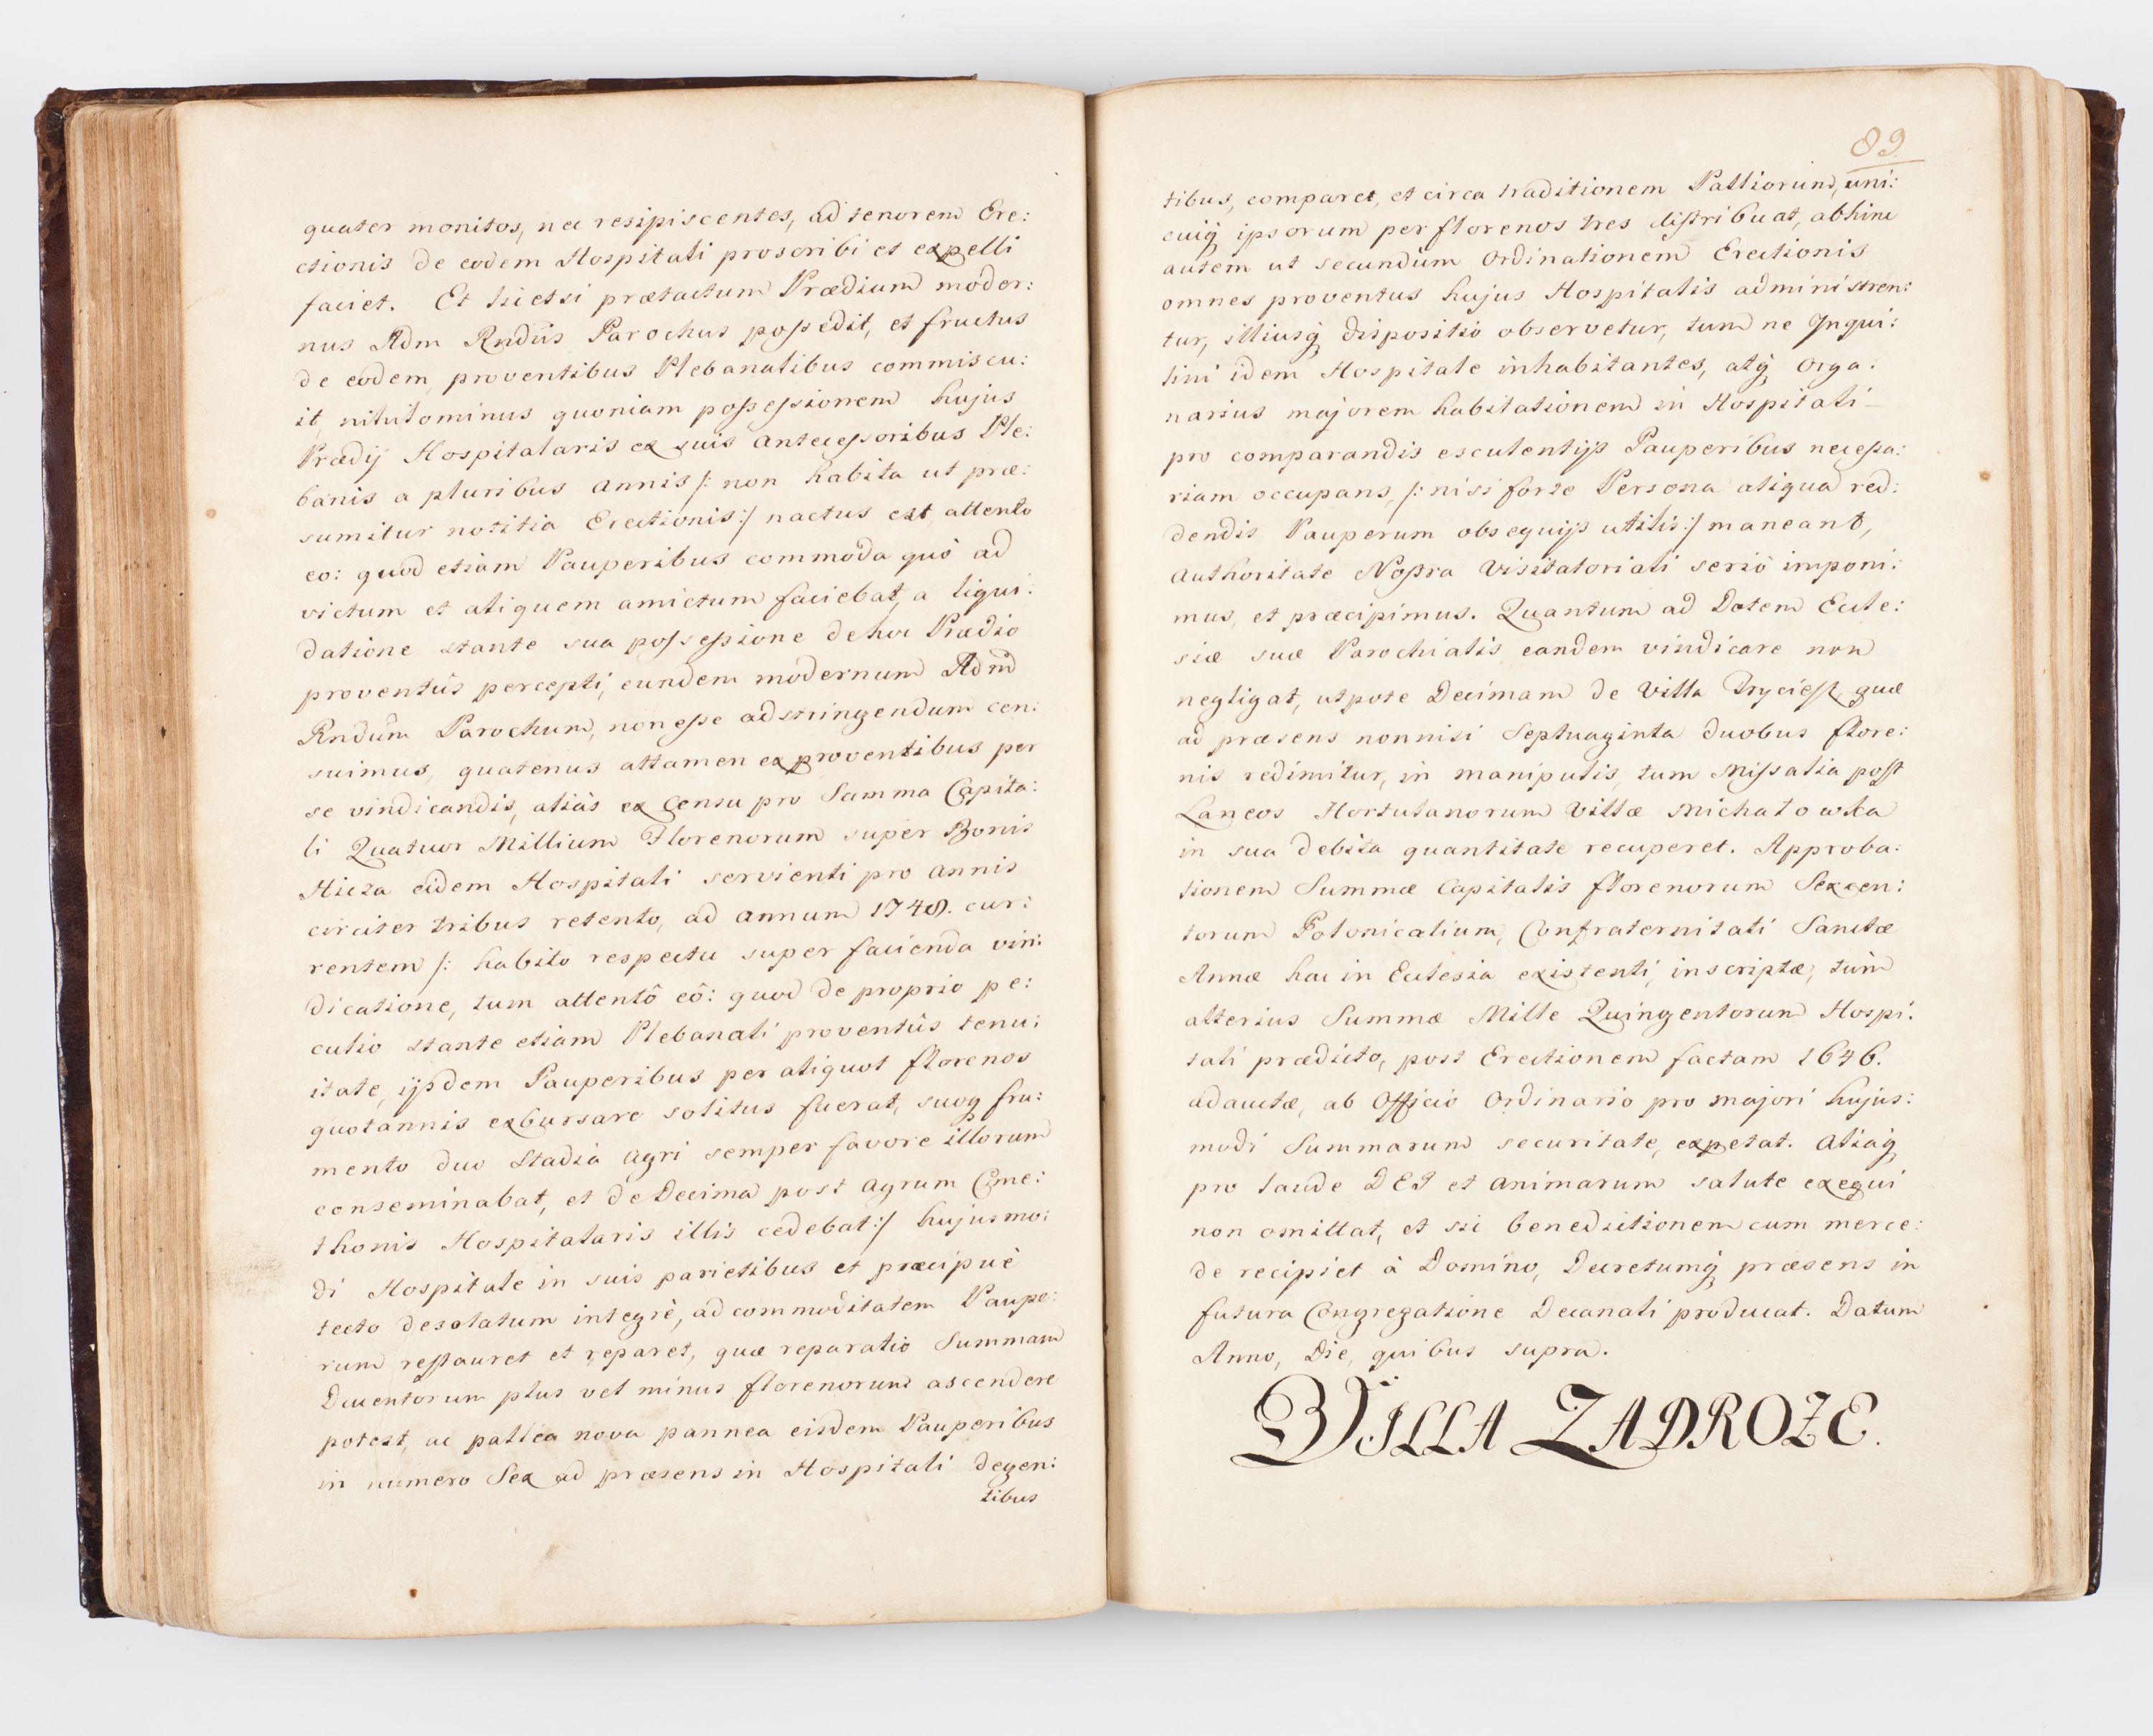 quater monitos, nec resipiscentes, ad tenorem Ere:
ctionis de eodem Hospitali proscribi et expelli
faciet. Et licet si prætactum Prædium moder:
nus Adm Rndus Parochus possedit, et fructus
de eodem proventibus Plebanalibus commiscu:
it, nihilominus quoniam possessionem hujus
Prædij Hospitalaris ex suis antecessoribus Ple:
banis a pluribus annis /: non habita ut præ:
sumitur notitia Erectionis :/ nactus est, attento
eo: quod etiam Pauperibus commoda quò ad
victum et aliquem amictum faciebat, a liqui:
datione stante sua possessione de hoc Prædio
proventûs percepti, eundem modernum Adm
Rndum Parochum, non esse adstringendum cen:
suimus, quatenus attamen ex proventibus per
se vindicandis, aliàs ex Censu pro Summa Capita:
li Quatuor Millium Florenorum super Bonis
Hicza eidem Hospitali servienti pro annis
circiter tribus retento, ad annum 1748. cur:
rentem /: habito respectu super facienda vin:
dicatione, tum attentô eô: quod de proprio pe:
culio stante etiam Plebanali proventûs tenu:
itate, ijsdem Pauperibus per aliquot florenos
quotannis exbursare solitus fuerat, suoq fru:
mento duo Stadia agri semper favore illorum
conseminabat, et de Decima post agrum Cme:
thonis Hospitalaris illis cedebat :/ hujusmo:
di Hospitale in suis parietibus et præcipuè
tecto desolatum integrè, ad commoditatem Paupe:
rum restauret et reparet, quæ reparatio Summam
Ducentorum plus vel minus florenorum ascendere
potest, ac pallea nova pannea eisdem Pauperibus
in numero Sex ad præsens in Hospitali degen:
tibus
89.
tibus, comparet, et circa traditionem Palliorum, uni:
cuiq ipsorum per florenos tres distribuat, abhinc
autem ut secundum Ordinationem Erectionis
omnes proventus hujus Hospitalis administren:
tur, illiusq dispositio observetur, tum ne Inqui:
lini idem Hospitale inhabitantes, atq Orga:
narius majorem habitationem in Hospitali
pro comparandis esculentijs Pauperibus necessa:
riam occupans, /: nisi forte Persona aliqua red:
dendis Pauperum obsequijs utilis :/ maneant,
Authoritate Nostra Visitatoriali seriò imponi:
mus, et præcipimus. Quantum ad Dotem Eccle:
siæ suæ Parochialis eandem vindicare non
negligat, utpote Decimam de Villa quæ
ad præsens nonnisi Septuaginta duobus flore:
nis redimitur, in manipulis, tum Missalia post
Laneos Hortulanorum Villæ Michałowka
in sua debita quantitate recuperet. Approba:
tionem Summæ Capitalis florenorum Sexcen:
torum Polonicalium, Confraternitati Sanctæ
Annæ hac in Ecclesia existenti, inscriptæ, tùm
alterius Summæ Mille Quingentorum Hospi:
tali prædicto, post Erectionem factam 1646.
adauctæ, ab Officio Ordinario pro majori hujus:
modi Summarum securitate, expetat. Aliaq
pro laude DEI et animarum salute exequi
non omittat, et sic benedictionem cum merce:
de recipiet à Domino, Decretumq præsens in
futura Congregatione Decanali producat. Datum
Anno, Die, quibus supra.
VILLA ZADROŻE.